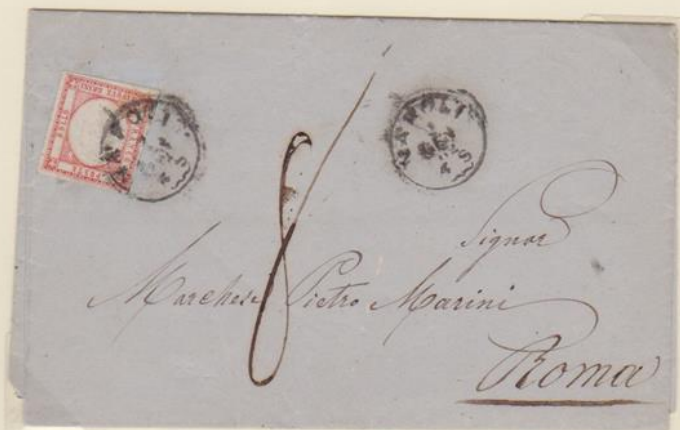 NAPOLI
NAPOLI
8
Signor
Marchese Pietro Marini
Roma